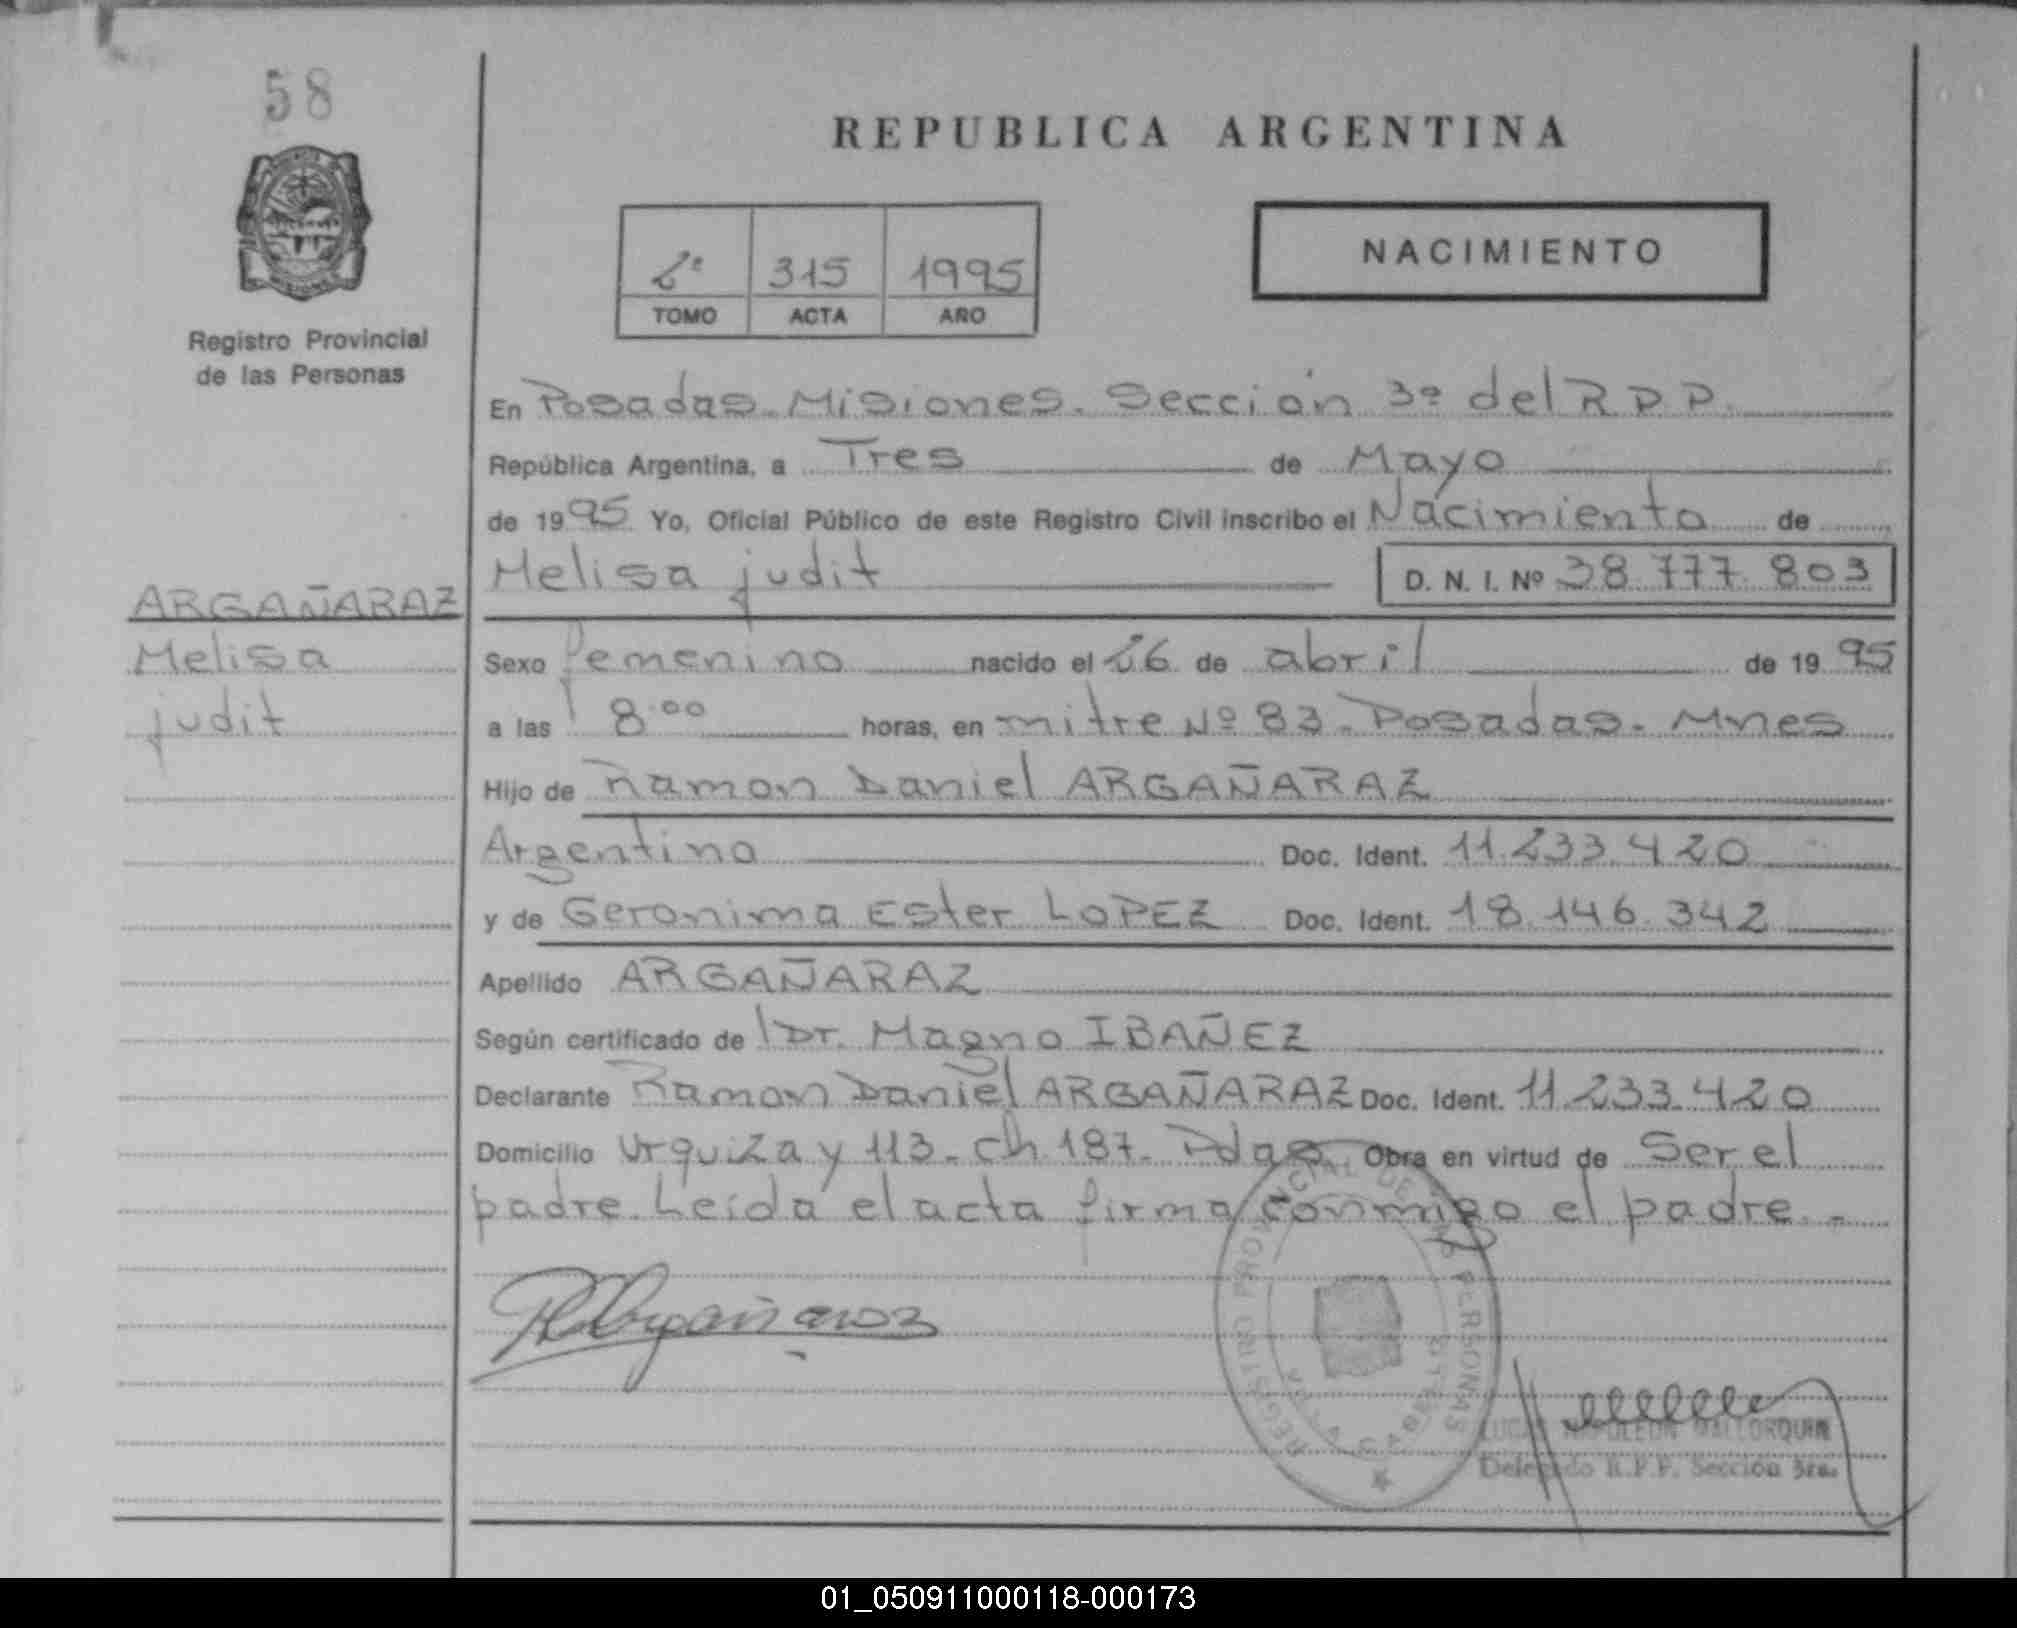 58
REPUBLICA ARGENTINA
2º 315 1995
TOMO ACTA AÑO
NACIMIENTO
Registro Provincial
de las Personas
En Posadas. Misiones. Sección 3ª del R P P.
República Argentina, a Tres de Mayo
de 1995 Yo, Oficial Público de este Registro Civil inscribo el Nacimiento de
Melisa judit D. N. I. Nº 38.777.803
ARGAÑARAZ
Melisa
judit
Sexo Femenino nacido el 26 de abril de 1995
a las 8.00 horas, en mitre Nº 83. Posadas. Mnes
Hijo de Ramon Daniel ARGAÑARAZ
Argentino Doc. Ident. 11.233.420
y de Geronima Ester LOPEZ Doc. Ident. 18.146.342
Apellido ARGAÑARAZ
Según certificado de Dr. Magno IBAÑEZ
Declarante Ramon Daniel ARGAÑARAZ Doc. Ident. 11.233.420
Domicilio Urquiza y 113. ch. 187. Pdas Obra en virtud de Ser el
padre. Leída el acta firma conmigo el padre.-
RDArgañaraz
REGISTRO PROVINCIAL DE LAS PERSONAS
LUCAS NAPOLEON MALLORQUIN
Delegado R.P.P. Sección 3ra.
01_050911000118-000173